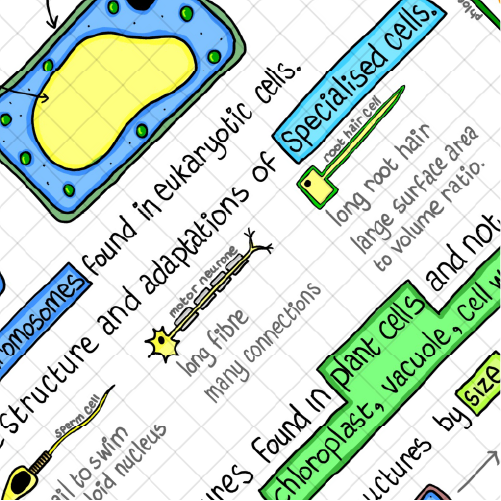 found in eukaryotic cells.
structure and adaptations of Specialised cells.
root hair cell
long root hair
large surface area
to volume ratio.
motor neurone
long fibre
many connections
sperm cell
to swim
nucleus
found in plant cells and not
chloroplast, vacuole, cell
by size